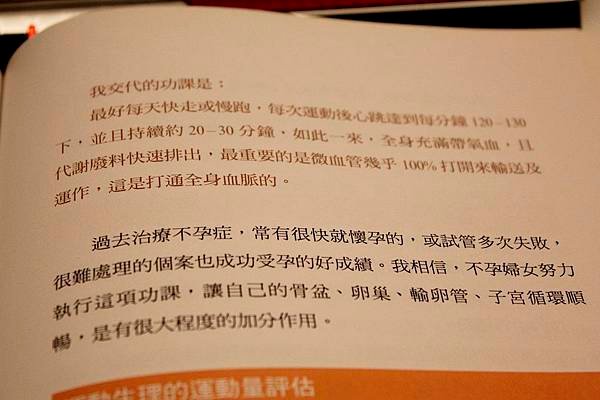 我交代的功課是：
最好每天快走或慢跑，每次運動後心跳達到每分鐘 120–130
下，並且持續約 20–30 分鐘，如此一來，全身充滿帶氧血，且
代謝廢料快速排出，最重要的是微血管幾乎 100% 打開來輸送及
運作，這是打通全身血脈的。
過去治療不孕症，常有很快就懷孕的，或試管多次失敗，
很難處理的個案也成功受孕的好成績。我相信，不孕婦女努力
執行這項功課，讓自己的骨盆、卵巢、輸卵管、子宮循環順
暢，是有很大程度的加分作用。
動生理的運動量評估